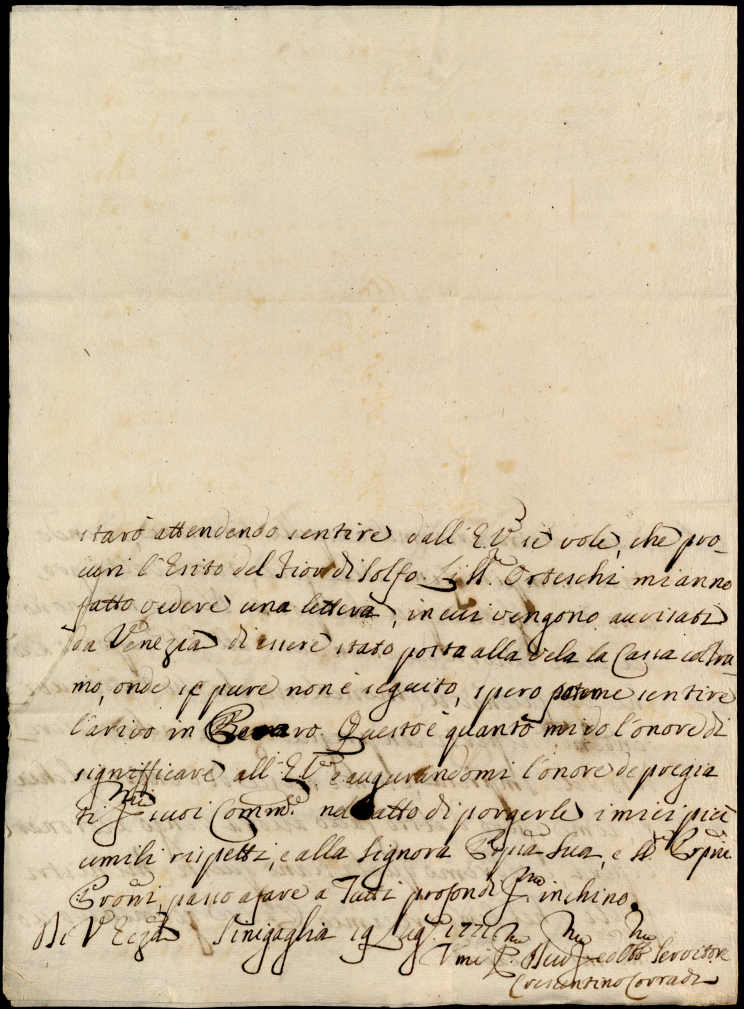 starò attendendo sentire dall'E.V. se vole, che pro-
curi l'Esito del Fior di Solfo. Li SS.ri Orteschi mi anno
fatto vedere una lettera, in cui vengono avvisati
da Venezia di essere stato posta alla vela la Cassa col Tra-
mo, onde se pure non è seguito, spero sentire
l'arivo in Pesaro. Questo è quanto mi do l'onore di
significare all'E.V. e augurandomi l'onore de pregia
ti.mi suoi Comm.di nell'atto di porgerle i miei più
umili rispetti, e alla Signora Sua, e
passo a fare a Tutti profondi.mo inchino.
Di V. Ecc.za Sinigaglia 19 Lug. 1771
Umi.mo Dev.mo ed Obb.mo Servitore
Crescentino Corradi